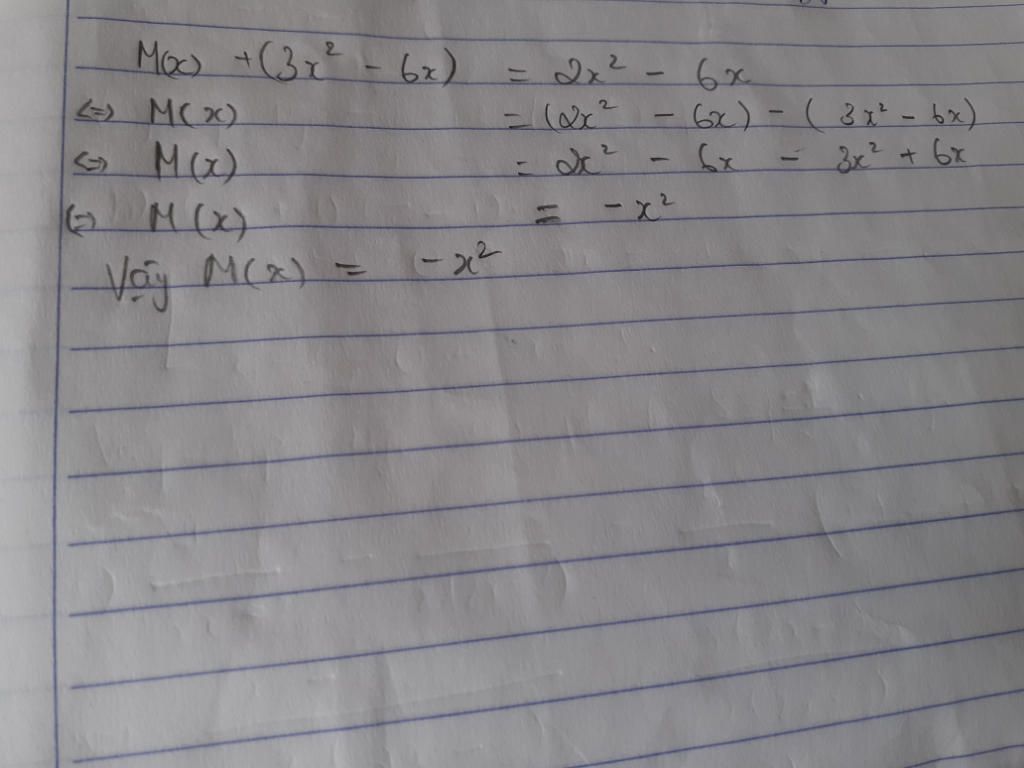 M(x) + (3x² - 6x) = 2x² - 6x
<=> M(x) = (2x² - 6x) - (3x² - 6x)
<=> M(x) = 2x² - 6x - 3x² + 6x
<=> M(x) = -x²
Vậy M(x) = -x²